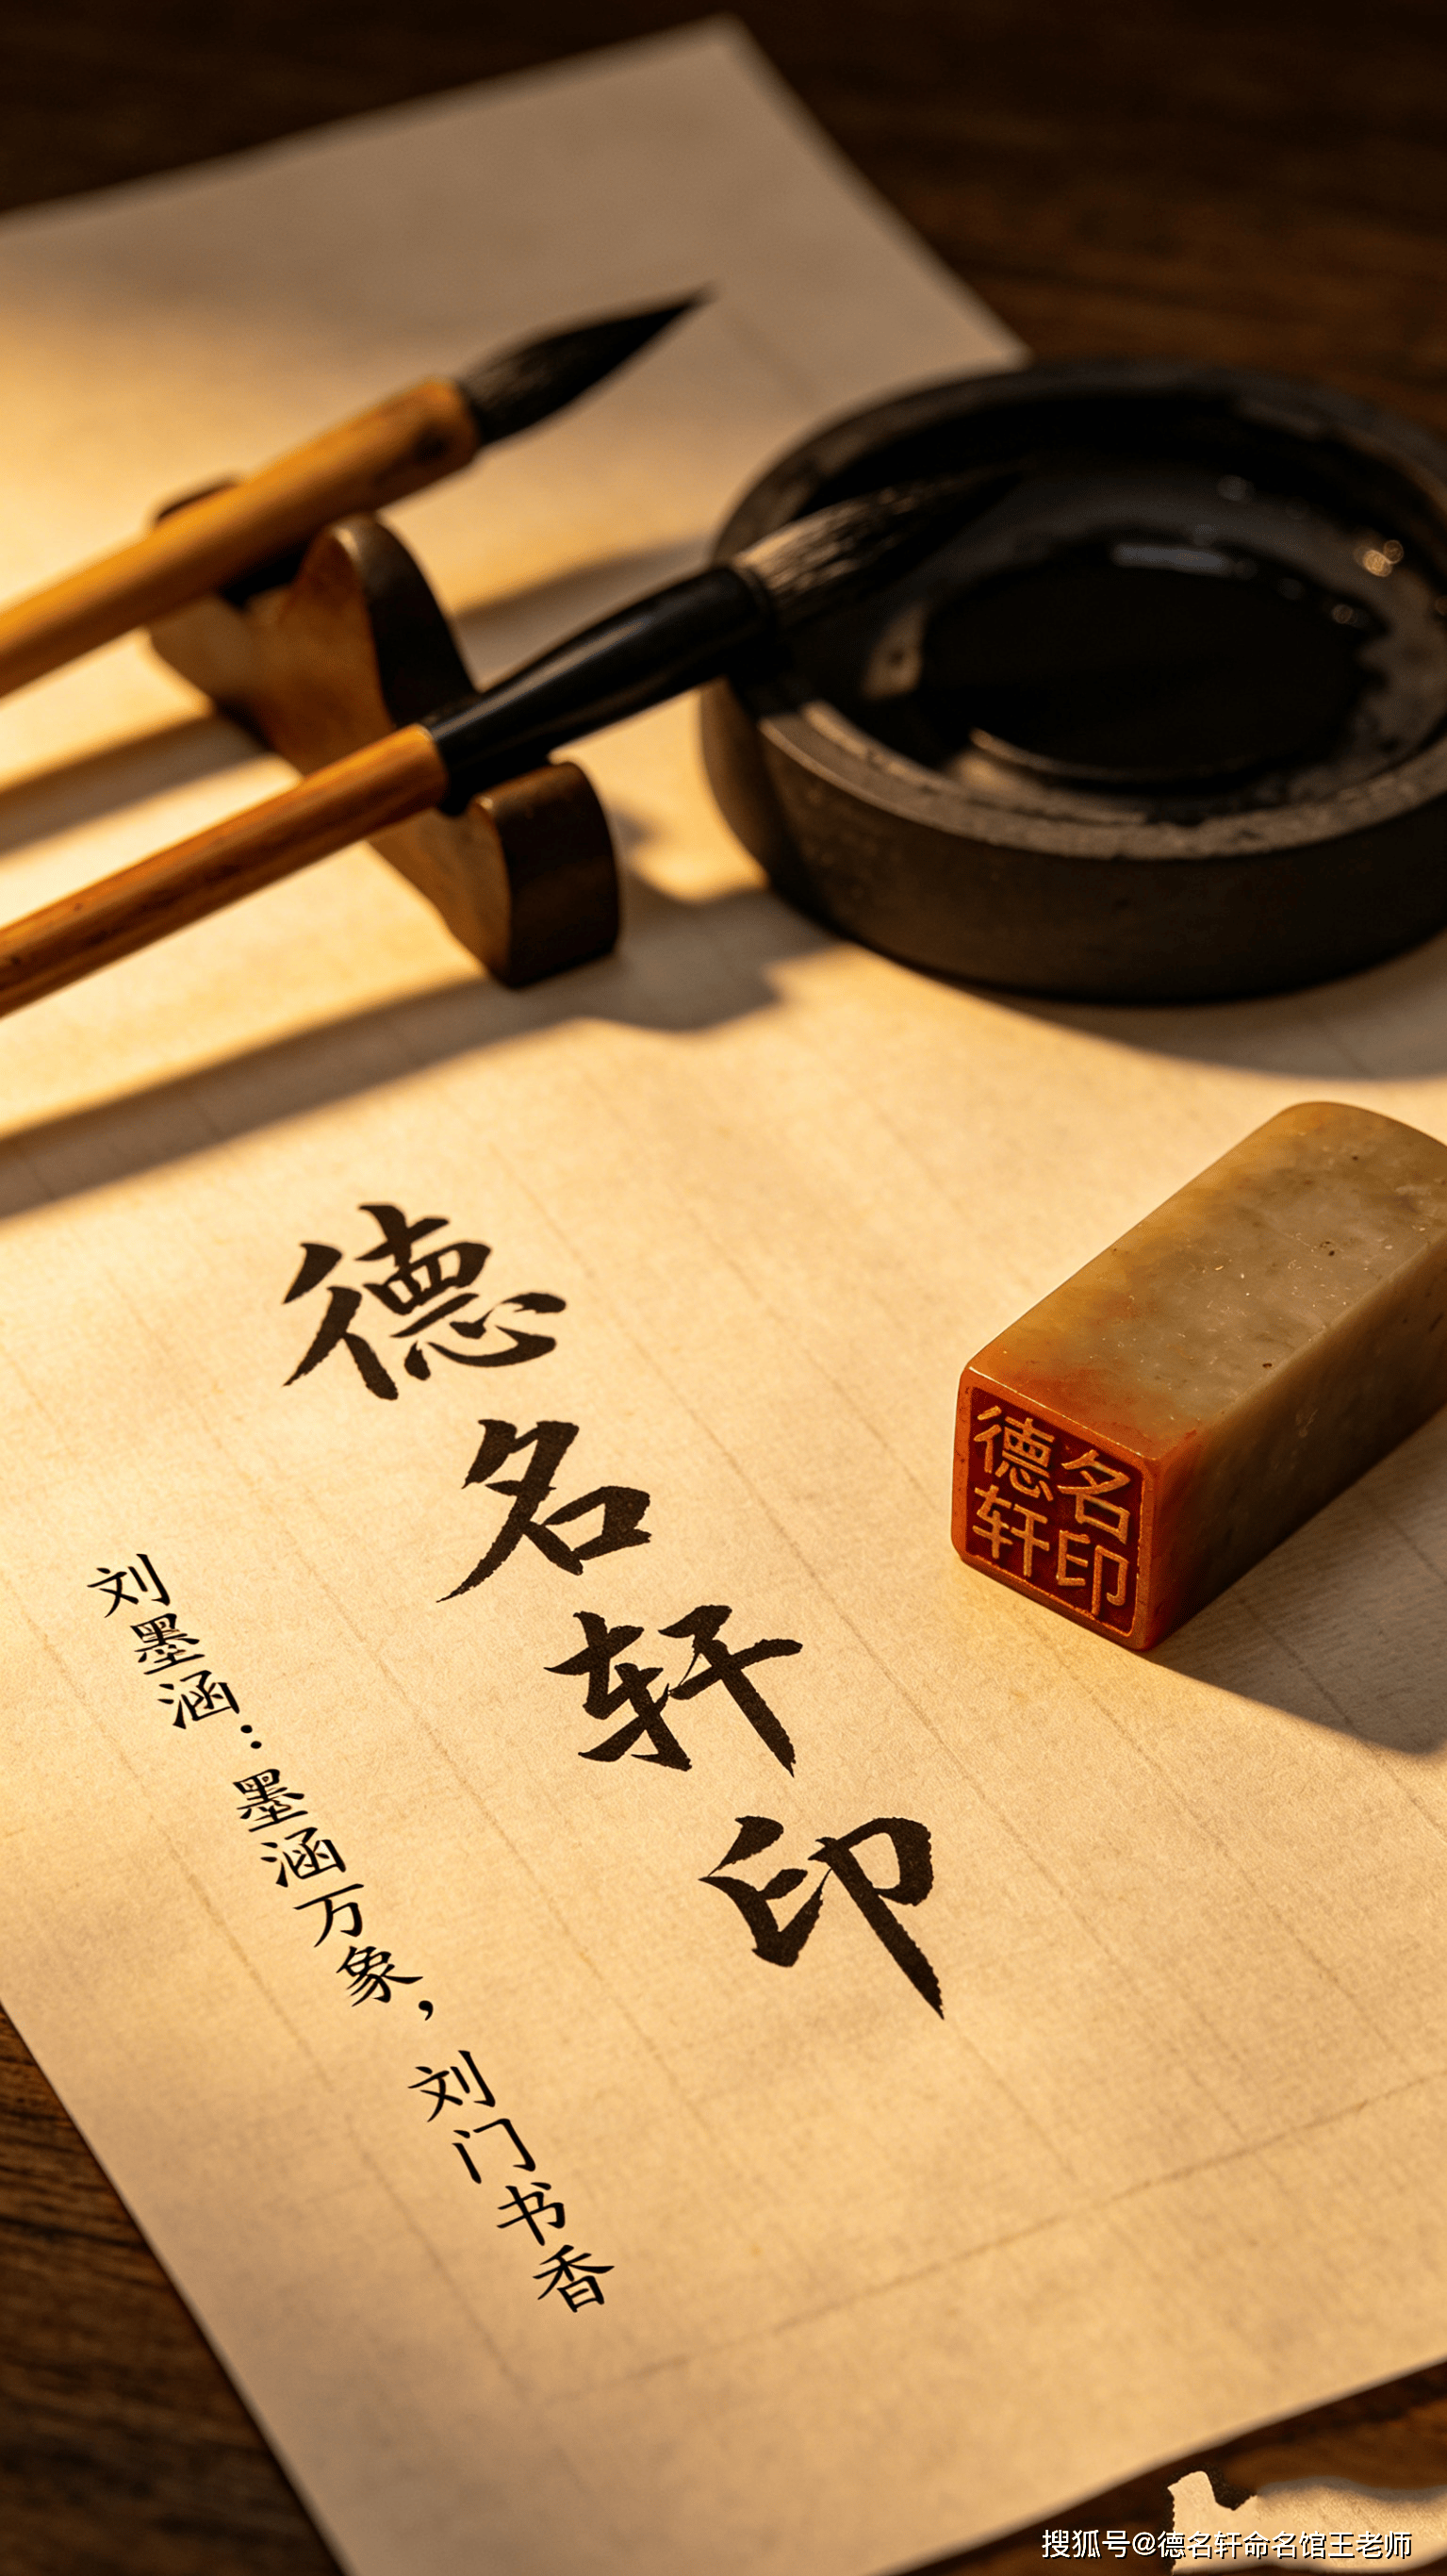 德名轩印
刘墨涵：墨涵万象，刘门书香
德名
轩印
搜狐号@德名轩命名馆王老师